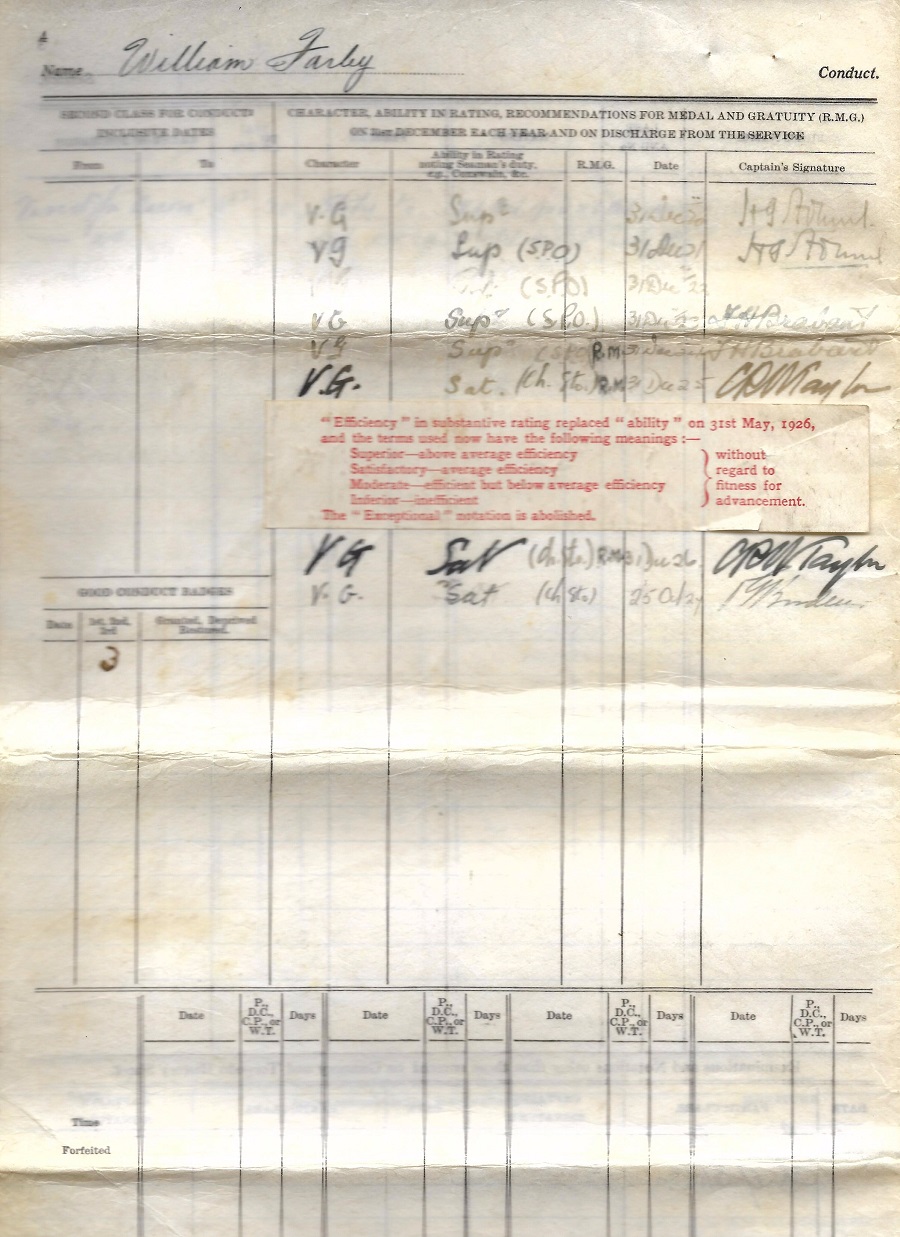 4
Name William Farley Conduct.
SECOND CLASS FOR CONDUCT
INCLUSIVE DATES
CHARACTER, ABILITY IN RATING, RECOMMENDATIONS FOR MEDAL AND GRATUITY (R.M.G.)
ON 31st DECEMBER EACH YEAR AND ON DISCHARGE FROM THE SERVICE
From To Character Ability in Rating noting Seaman's duty, e.g., Coxswain, &c. R.M.G. Date Captain's Signature
V.G Sup 31 Dec 20
VG Sup (S.P.O) 31 Dec 21
(S.P.O) 31 Dec 22
VG Sup (S.P.O.) 31 Dec 23 Brabant
VG Sup (SPO) R.M. Dec Brabant
V.G. Sat. (Ch. Sto.) R.M 31 Dec 25 Taylor
"Efficiency" in substantive rating replaced "ability" on 31st May, 1926,
and the terms used now have the following meanings :—
Superior—above average efficiency
Satisfactory—average efficiency
Moderate—efficient but below average efficiency
Inferior—inefficient
without
regard to
fitness for
advancement.
The "Exceptional" notation is abolished.
VG Sat (Ch. Sto.) R.M 31 Dec 26. Taylor
V. G. Sat (Ch Sto)
GOOD CONDUCT BADGES
Date 1st, 2nd, 3rd Granted, Deprived Restored.
3
Date P., D.C., C.P., or W.T. Days Date P., D.C., C.P., or W.T. Days Date P., D.C., C.P., or W.T. Days Date P., D.C., C.P., or W.T. Days
Time
Forfeited